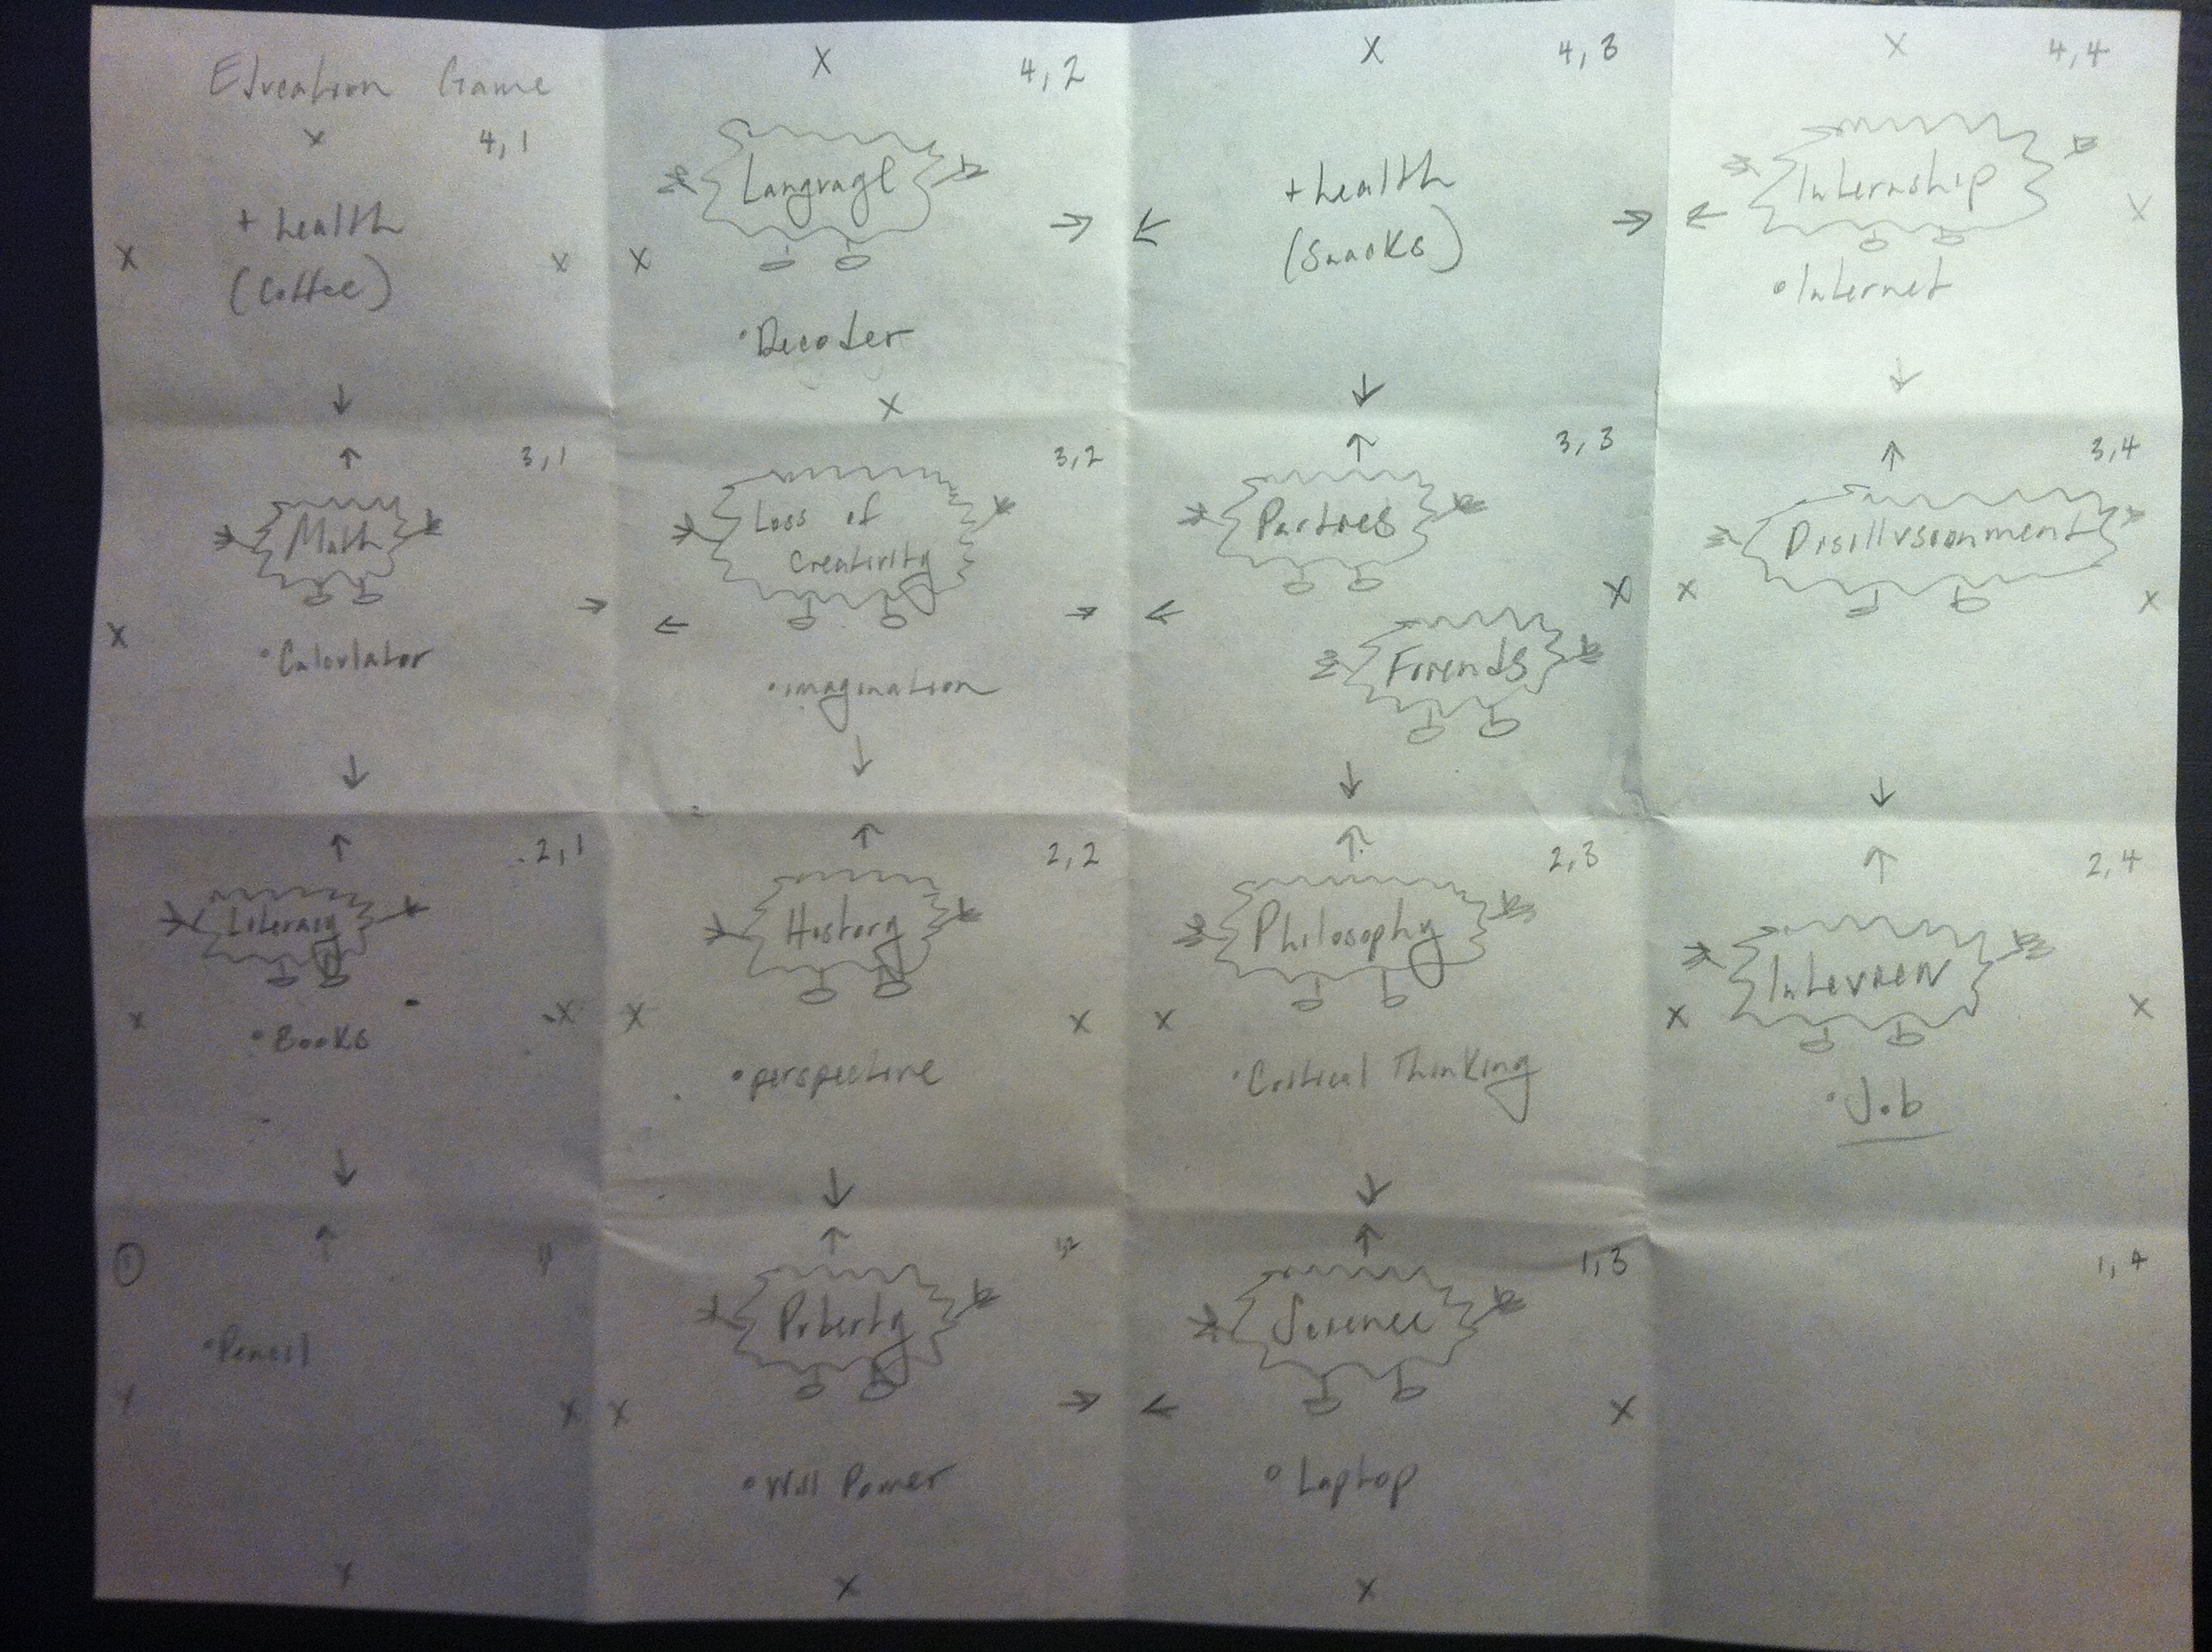 Education Game
x
4,1
+ health
(Coffee)
x
x
↓
x
4,2
x
Language
→
• Decoder
x
x
4,3
←
+ health
(Snacks)
→
↓
x
4,4
←
Internship
x
• Internet
↓
↑
3,1
Math
x
→
• Calculator
↓
3,2
Loss of
creativity
←
→
• imagination
↑
3,3
Parties
←
x
Friends
↓
↑
3,4
Disillusionment
x
x
↓
↑
2,1
Literary
x
x
• Books
↓
↑
2,2
History
x
x
• perspective
↓
↑
2,3
Philosophy
x
• Critical Thinking
↓
↑
2,4
Interview
x
x
• Job
①
↑
x
x
• Pencil
x
↑
Puberty
x
→
• Will Power
x
↑
1,3
Science
←
x
• Laptop
x
1,4